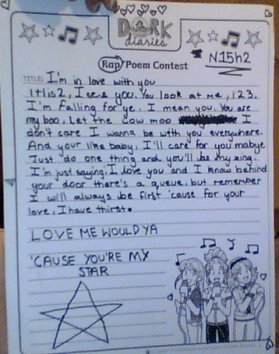 DORK
diaries
Rap Poem Contest
N15h2
TITLE: I'm in love with you
1tlis2, I see you. You look at me, 123.
I'm falling for ye, I mean you. You are
my boo. Let the cow moo I
don't care I wanna be with you everywhere.
And your like baby, I'll care for you mabye.
Just do one thing and you'll be my
I'm just saying. I love you and I know behind
your door there's a queue, but remember
I will always be first 'cause for your
love, I have thirst.
LOVE ME WOULD YA
'CAUSE YOU'RE MY
STAR